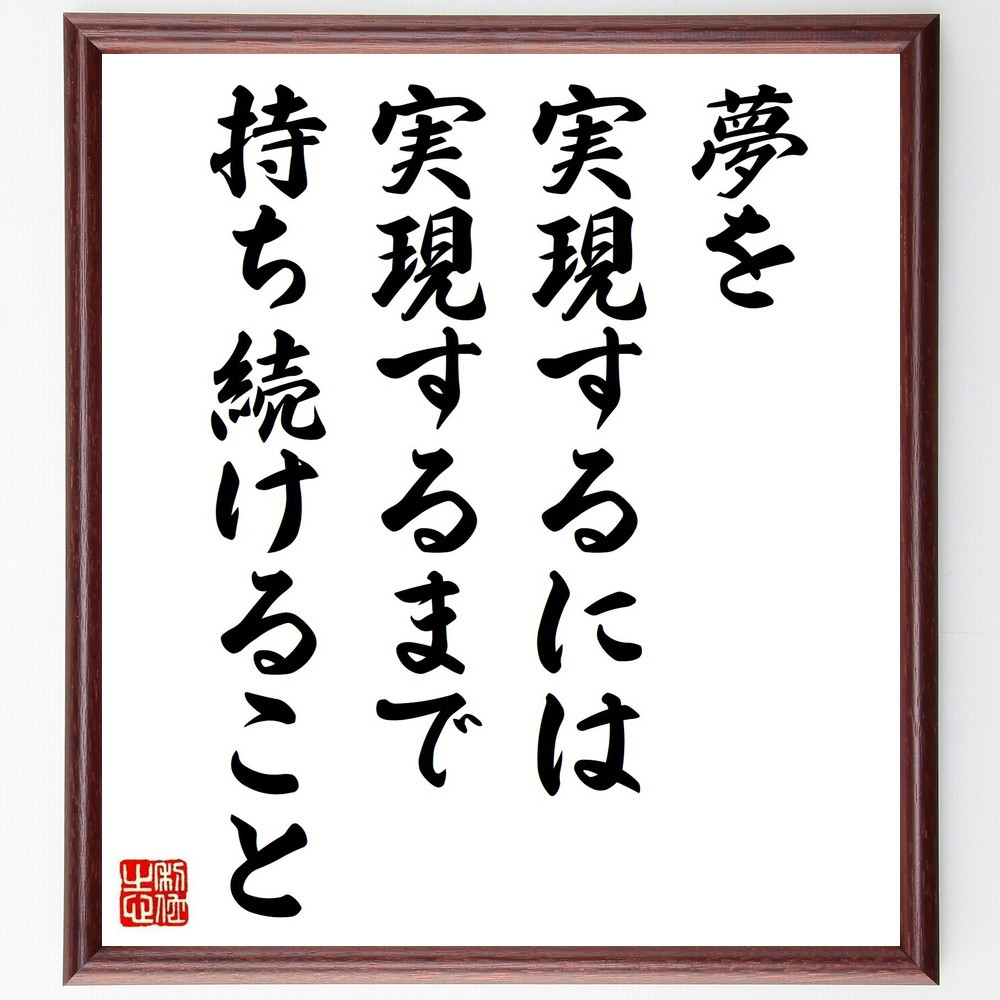 夢を
実現するには
実現するまで
持ち続けること